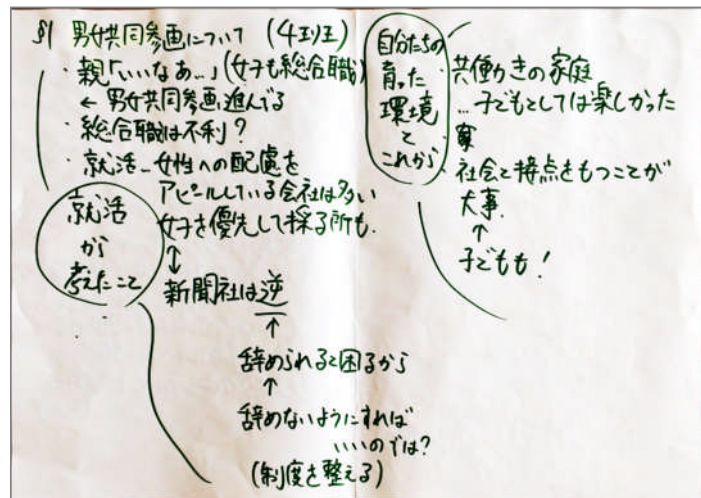 §1 男女共同参画について (4班)
・親「いいなぁ…」(女子も総合職)
← 男女共同参画進んでる
・総合職は不利?
・就活…女性への配慮を
アピールしている会社は多い
女子を優先して採る所も
↕
新聞社は逆
↑
辞められると困るから
↑
辞めないようにすれば
いいのでは?
(制度を整える)
就活
から
考えたこと
自分たちの
育った
環境
と
これから
・共働きの家庭
…子どもとしては楽しかった
・社会と接点をもつことが
大事.
↑
子どもも!